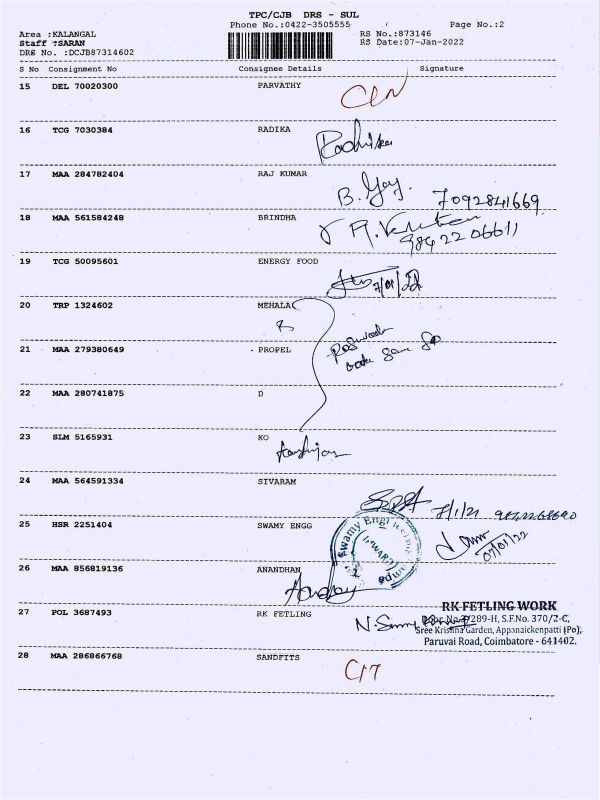 TPC/CJB DRS - SUL
Phone No.:0422-3505555
Page No.:2
Area :KALANGAL
RS No.:873146
Staff :SARAN
RS Date:07-Jan-2022
DRS No. :DCJB87314602
S No Consignment No Consignee Details Signature
15 DEL 70020300 PARVATHY
16 TCG 7030384 RADIKA
Radhika
17 MAA 284782404 RAJ KUMAR
7092841669
18 MAA 561584248 BRINDHA
9842206611
19 TCG 50095601 ENERGY FOOD
7/01/22
20 TRP 1324602 MEHALA
21 MAA 279380649 PROPEL
22 MAA 280741875 D
23 SLM 5165931 KO
24 MAA 564591334 SIVARAM
7/1/21
25 HSR 2251404 SWAMY ENGG
Swamy Engineering
INWARD
07/01/22
26 MAA 856819136 ANANDHAN
27 POL 3687493 RK FETLING
RK FETLING WORK
Door No.7/289-H, S.F.No. 370/2-C,
Sree Krishna Garden, Appanaickenpatti (Po),
Paruvai Road, Coimbatore - 641402.
28 MAA 286866768 SANDFITS